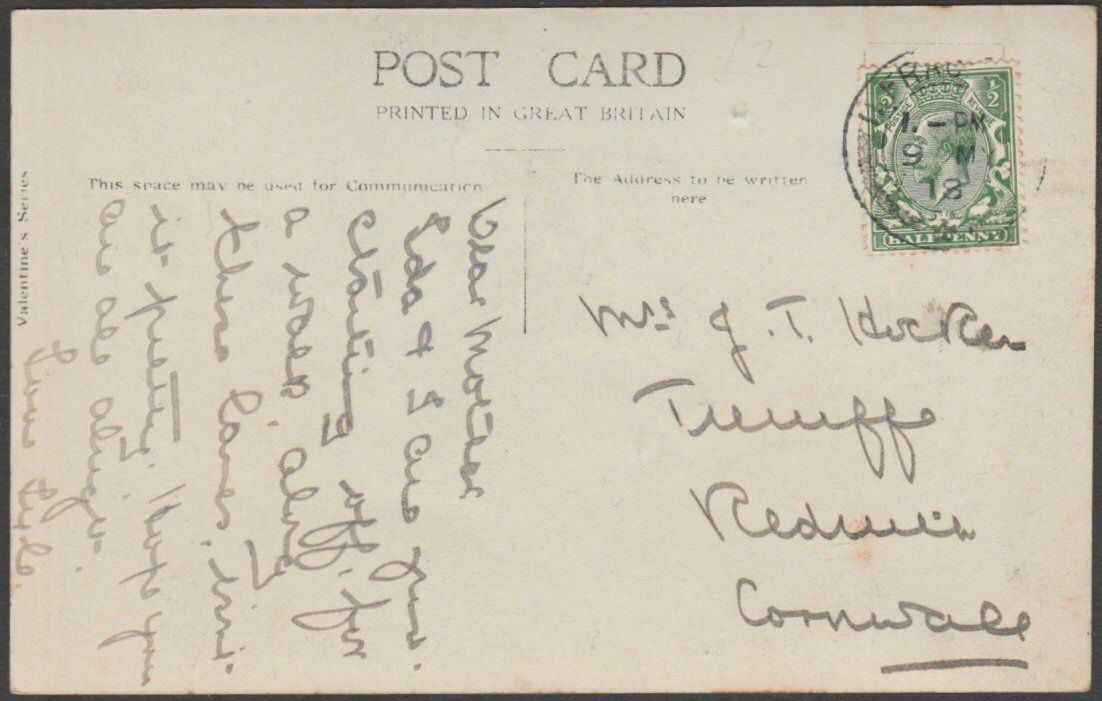 POST CARD
PRINTED IN GREAT BRITAIN
This space may be used for Communication
The Address to be written
here
Valentine's Series
½ ½
POSTAGE REVENUE
HALFPENNY
1. - PM
9 M
18
Dear Mother
Ida & I are just
starting off, for
a walk, along
these lanes, isn't
it pretty. Hope you
are all alright.
Love
Mrs J. T. Hocken
Treruffe
Redruth
Cornwall